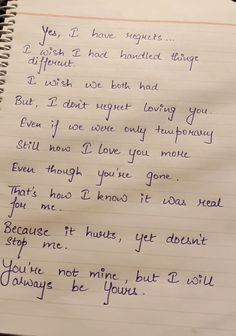 Yes, I have regrets...
I wish I had handled things
different.
I wish we both had
But, I don't regret loving you.
Even if we were only temporary
Still now I love you more
Even though you're gone.
That's how I know it was real
for me.
Because it hurts, yet doesn't
stop me.
You're not mine, but I will
always be yours.